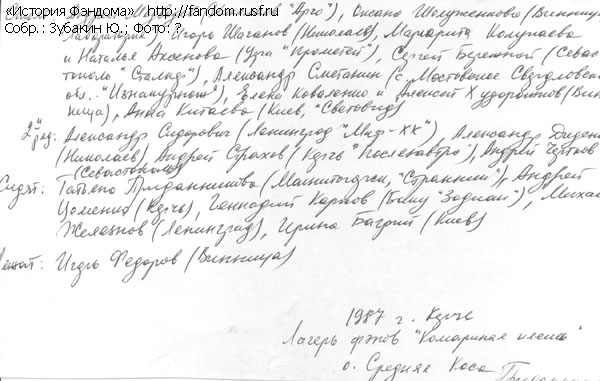 «История Фэндома» - http://fandom.rusf.ru
Собр.: Зубакин Ю.; Фото: ?
"Арго"), Оксана Шелуженкова (Винница
Лаборатория), Игорь Шаганов (Николаев), Маргарита
и Наталья Аксенова (Уфа "Прометей"), Сергей Бережной (Севас
тополь "Сталкер"), Александр Сметанин (с. Мостовское Свердловской
обл. -), Елена Коваленко и Алексей Худорожков (Вин
ница), Анна Китаева (Киев, "Световид")
2й ряд: Александр Сидорович (Ленинград "МИФ-XX"), Александр Диденко
(Николаев) Андрей Страхов (Керчь "Послезавтра"), Андрей Чертков
(Севастополь)
Сидят: Татьяна Приданникова (Магнитогорск, "Странник"), Андрей
(Керчь), Геннадий Карпов (Баку "Зодиак"), Михаил
Железнов (Ленинград), Ирина Багрий (Киев)
Лежит: Игорь Федоров (Винница)
1987 г. Керчь
Лагерь фэнов "Комариная плешь"
о. Средняя Коса